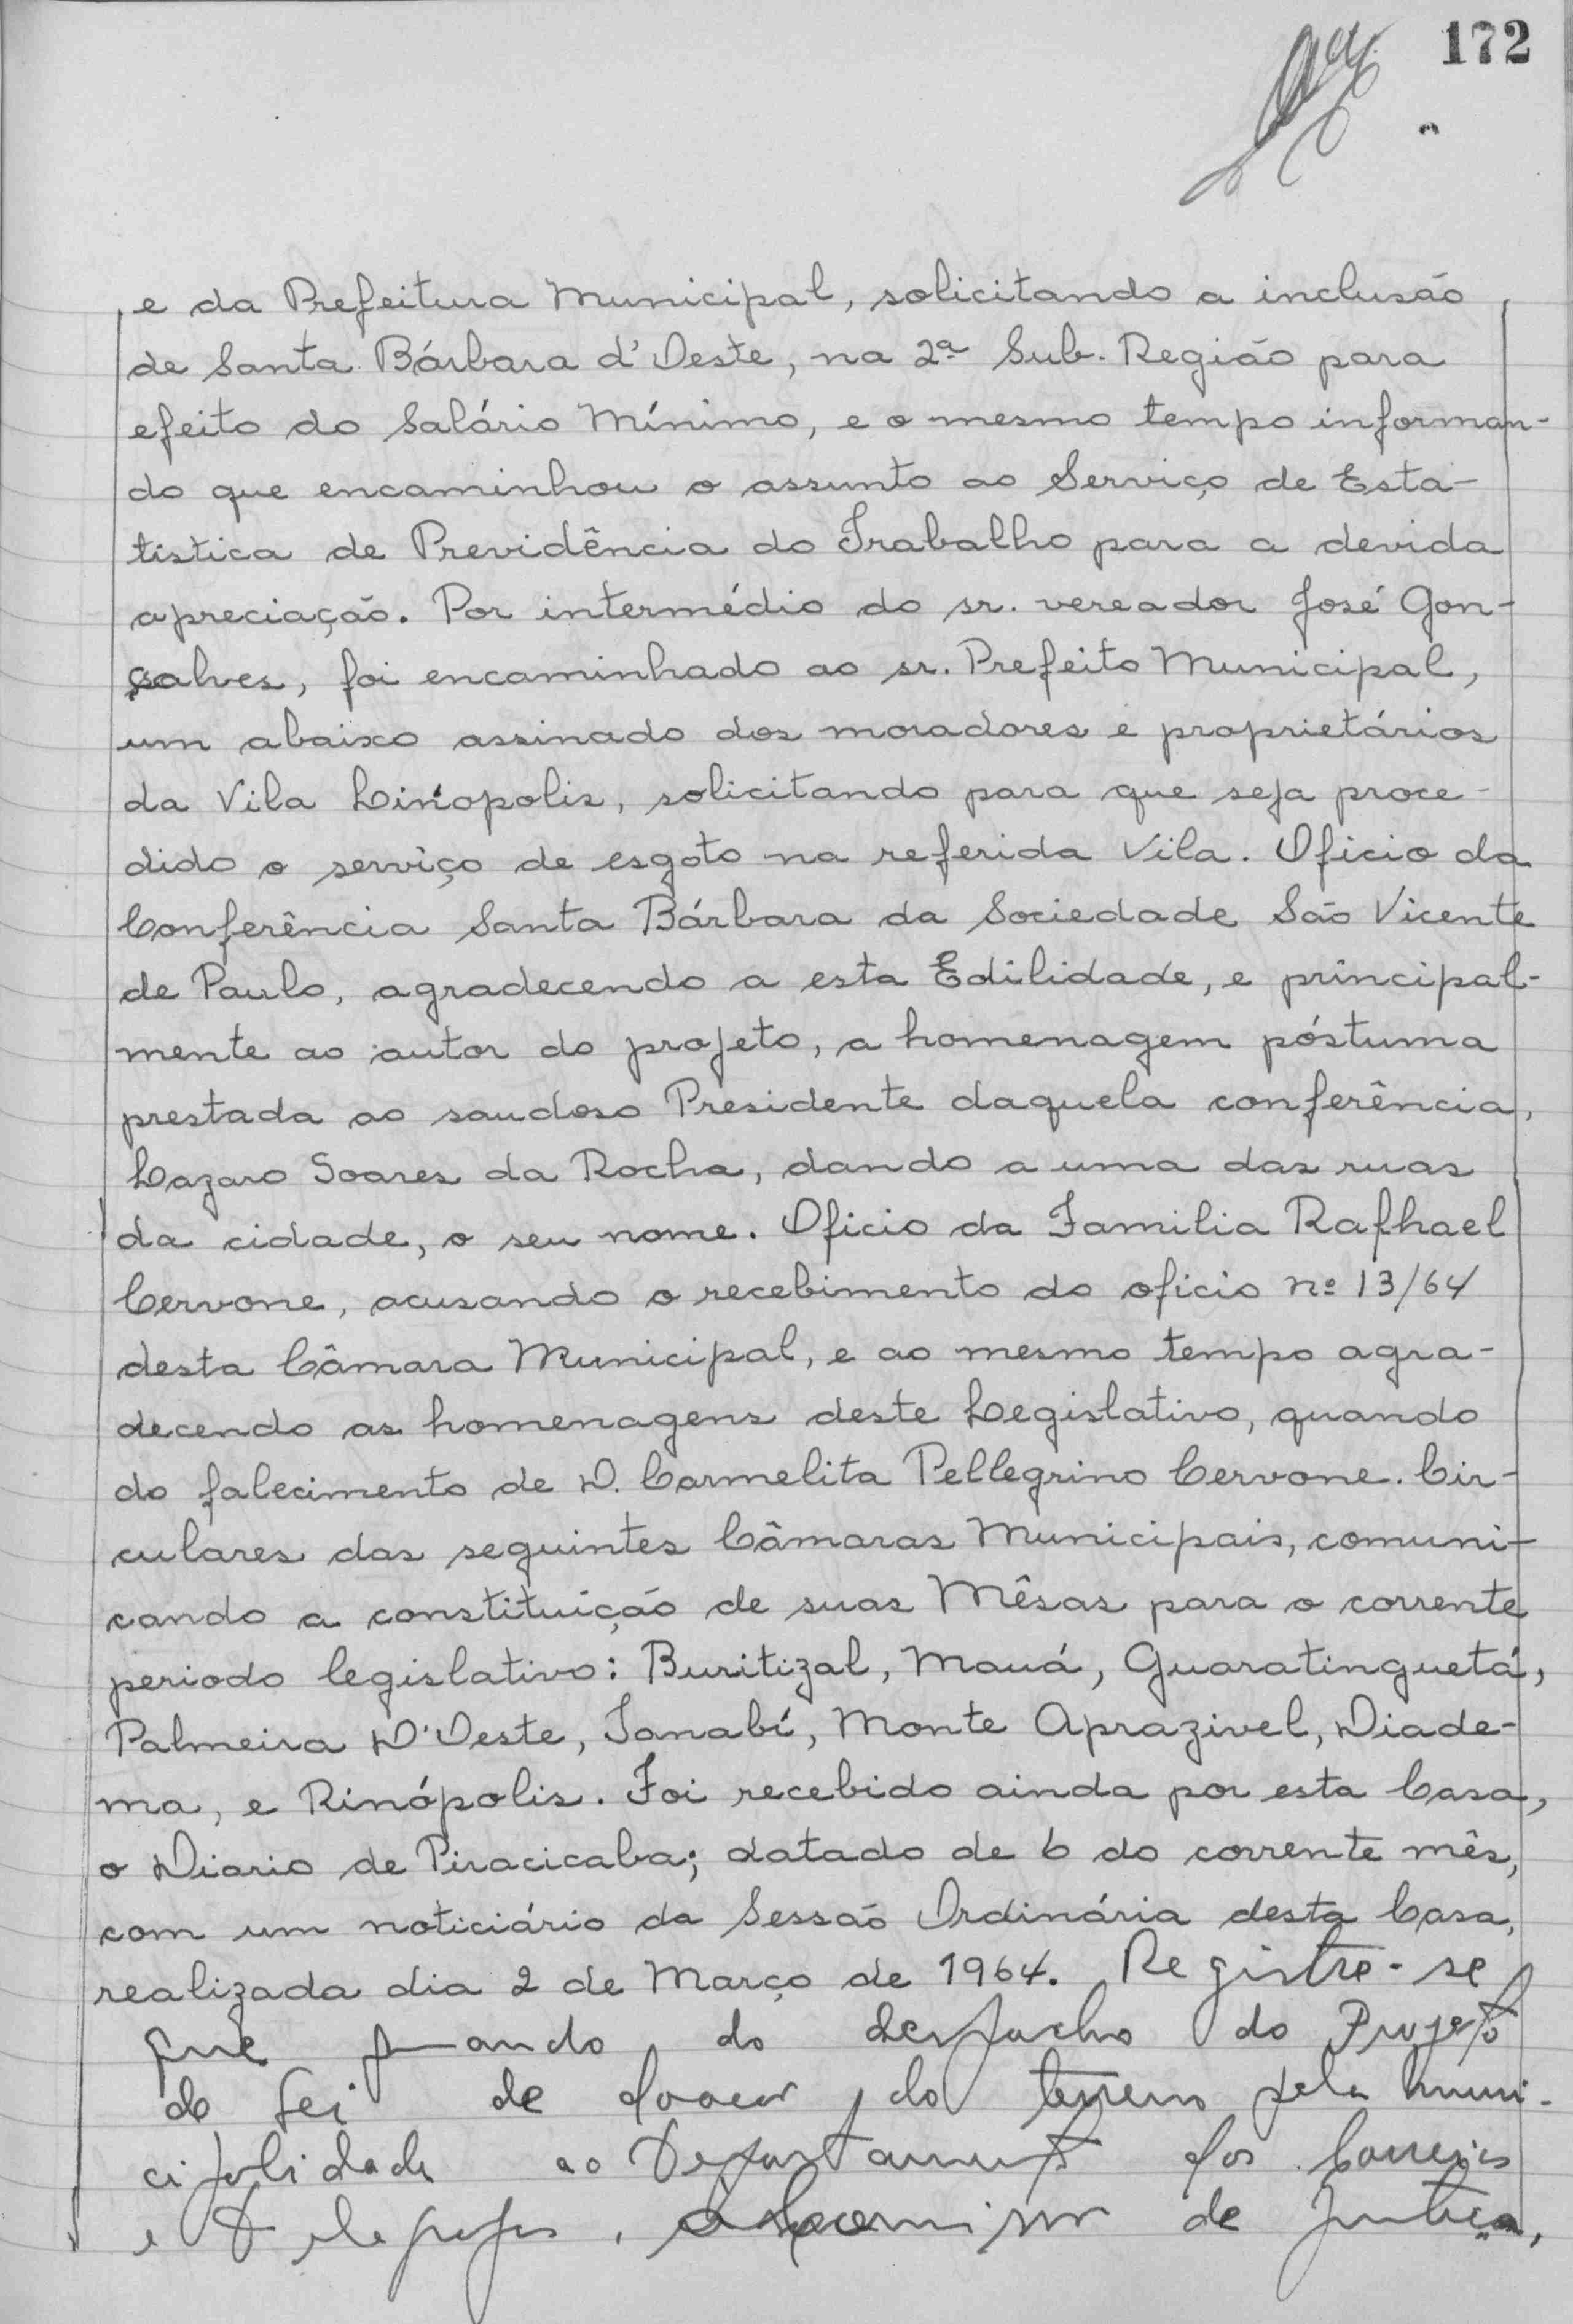 172
e da Prefeitura Municipal, solicitando a inclusão
de Santa Bárbara d'Oeste, na 2ª Sub. Região para
efeito do Salário Mínimo, e o mesmo tempo informan-
do que encaminhou o assunto ao Serviço de Esta-
tistica de Previdência do Trabalho para a devida
apreciação. Por intermédio do sr. vereador José Gon-
çalves, foi encaminhado ao sr. Prefeito Municipal,
um abaixo assinado dos moradores e proprietários
da Vila Linópolis, solicitando para que seja proce-
dido o serviço de esgoto na referida Vila. Oficio da
Conferência Santa Bárbara da Sociedade São Vicente
de Paulo, agradecendo a esta Edilidade, e principal-
mente ao autor do projeto, a homenagem póstuma
prestada ao saudoso Presidente daquela conferência,
Lazaro Soares da Rocha, dando a uma das ruas
da cidade, o seu nome. Oficio da Familia Rafhael
Cervone, acusando o recebimento do oficio nº 13/64
desta Câmara Municipal, e ao mesmo tempo agra-
decendo as homenagens deste Legislativo, quando
do falecimento de D. Carmelita Pellegrino Cervone. Cir-
culares das seguintes Câmaras Municipais, comuni-
cando a constituição de suas Mêsas para o corrente
periodo legislativo: Buritizal, Mauá, Guaratinguetá,
Palmeira D'Oeste, Tanabí, Monte Aprazivel, Diade-
ma, e Rinópolis. Foi recebido ainda por esta Casa,
o Diario de Piracicaba; datado de 6 do corrente mês,
com um noticiário da Sessão Ordinária desta Casa,
realizada dia 2 de Março de 1964. Registre-se
que quando do despacho do Projeto
de Lei de doacar do terreno pela muni-
cipalidade ao Departamento dos Correios
e Telegrafos, de Justiça,